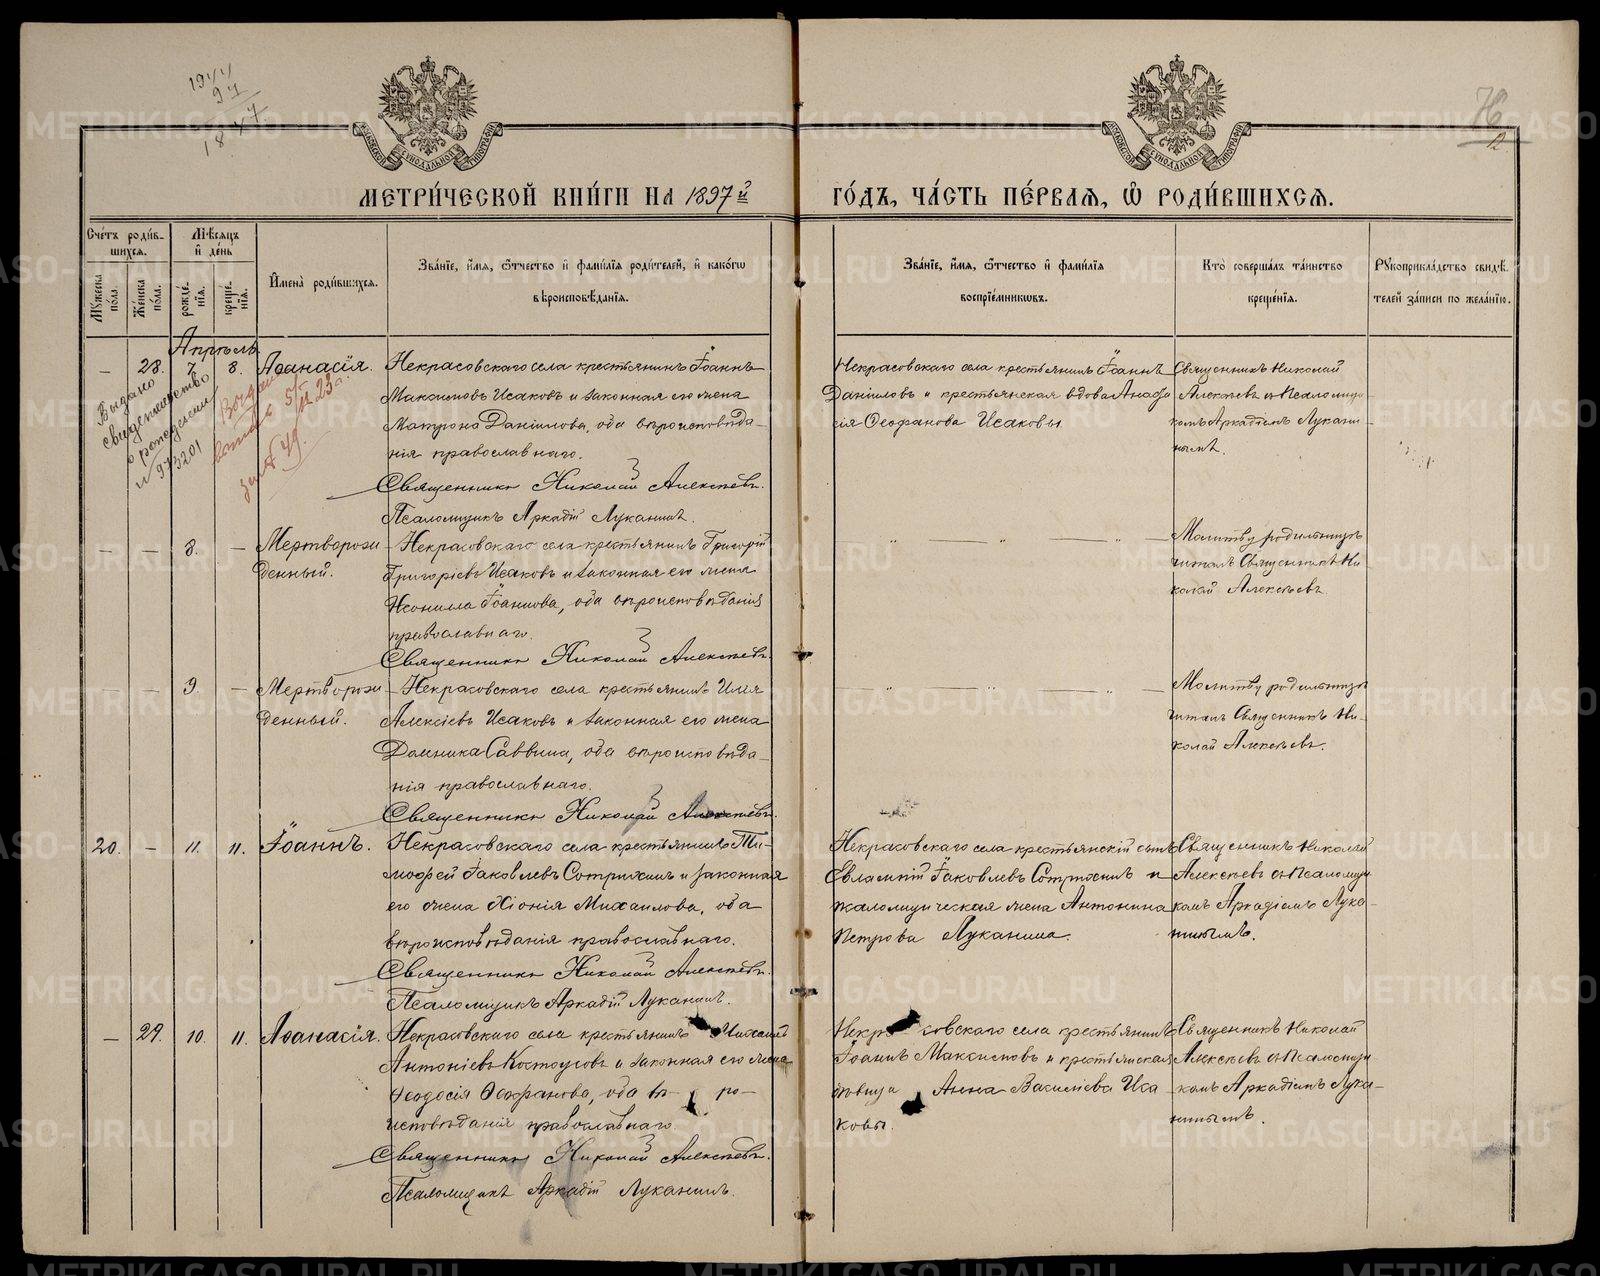 1944
97
1847
76
12
МЕТРИ́ЧЕСКОЙ КНИ́ГИ НА 1897й ГО́ДЪ, ЧА́СТЬ ПЕ́РВАЯ, Ѡ РОДИ́ВШИХСЯ.
Сче́тъ роди́в-
шихся.
Мꙋжеска по́ла.
Же́нска по́ла.
Мѣ́сяцъ и де́нь
рожде́-
нїя.
креще́-
нїя.
Имена̀ роди́вшихся.
Зва́нїе, и́мя, ѻ́тчество и фами́лїя роди́телей, и како́гѡ
вѣроисповѣ́данїя.
Зва́нїе, и́мя, ѻ́тчество и фами́лїя
воспрїе́мникѡвъ.
Кто̀ соверша́лъ та́инство
креще́нїя.
Рꙋкоприкла́дство свидѣ́-
телей за́писи по жела́нїю.
Апрѣль
— 28. 7. 8. Аѳанасія.
Некрасовскаго села крестьянинъ Іоаннъ
Максимовъ Исаковъ и законная его жена
Матрона Даніилова, оба вѣроисповѣда-
нія православнаго.
Священникъ Николай Алексѣевъ.
Псаломщикъ Аркадій Луканинъ.
Некрасовскаго села крестьянинъ Іоаннъ
Даніиловъ и крестьянская вдова Анаста
сія Ѳеофанова Исаковы
Священникъ Николай
Алексѣевъ съ Псаломщи-
комъ Аркадіемъ Лукани-
нымъ.
Выдано
свидетельство
о рождении
973201
— — 8. — Мертворож
денный.
Некрасовскаго села крестьянинъ Григорій
Григоріевъ Исаковъ и законная его жена
Неонилла Іоаннова, оба вѣроисповѣданія
православнаго.
Священникъ Николай Алексѣевъ.
Молитву родильницѣ
читалъ Священникъ Ни-
колай Алексѣевъ
— — 9. — Мертворож
денный.
Некрасовскаго села крестьянинъ Илія
Алексіевъ Исаковъ и законная его жена
Домника Саввина, оба вѣроисповѣда-
нія православнаго.
Священникъ Николай Алексѣевъ.
Молитву родильницѣ
читалъ Священникъ Ни-
колай Алексѣевъ.
20. — 11. 11. Іоаннъ.
Некрасовскаго села крестьянинъ Ти-
моѳей Іаковлевъ Сотрихинъ и законная
его жена Хіонія Михаилова, оба
вѣроисповѣданія православнаго.
Священникъ Николай Алексѣевъ.
Псаломщикъ Аркадій Луканинъ.
Некрасовскаго села крестьянскій сынъ
Евлампій Іаковлевъ Сотрихинъ и
псаломщическая жена Антонина
Петрова Луканина.
Священникъ Николай
Алексѣевъ съ Псаломщи
комъ Аркадіемъ Лука-
нинымъ.
— 29. 10. 11. Аѳанасія.
Некрасовскаго села крестьянинъ Михаилъ
Антоніевъ Костоусовъ и законная его жена
Ѳеодосія Ѳеофанова, оба вѣ-ро-
исповѣданія православнаго.
Священникъ Николай Алексѣевъ.
Псаломщикъ Аркадій Луканинъ.
Некрасовскаго села крестьянинъ
Іоаннъ Максимовъ и крестьянская
дѣвица Анна Василіева Иса
ковы.
Священникъ Николай
Алексѣевъ съ Псаломщи
комъ Аркадіемъ Лука-
нинымъ.
METRIKI.GASO-URAL.RU